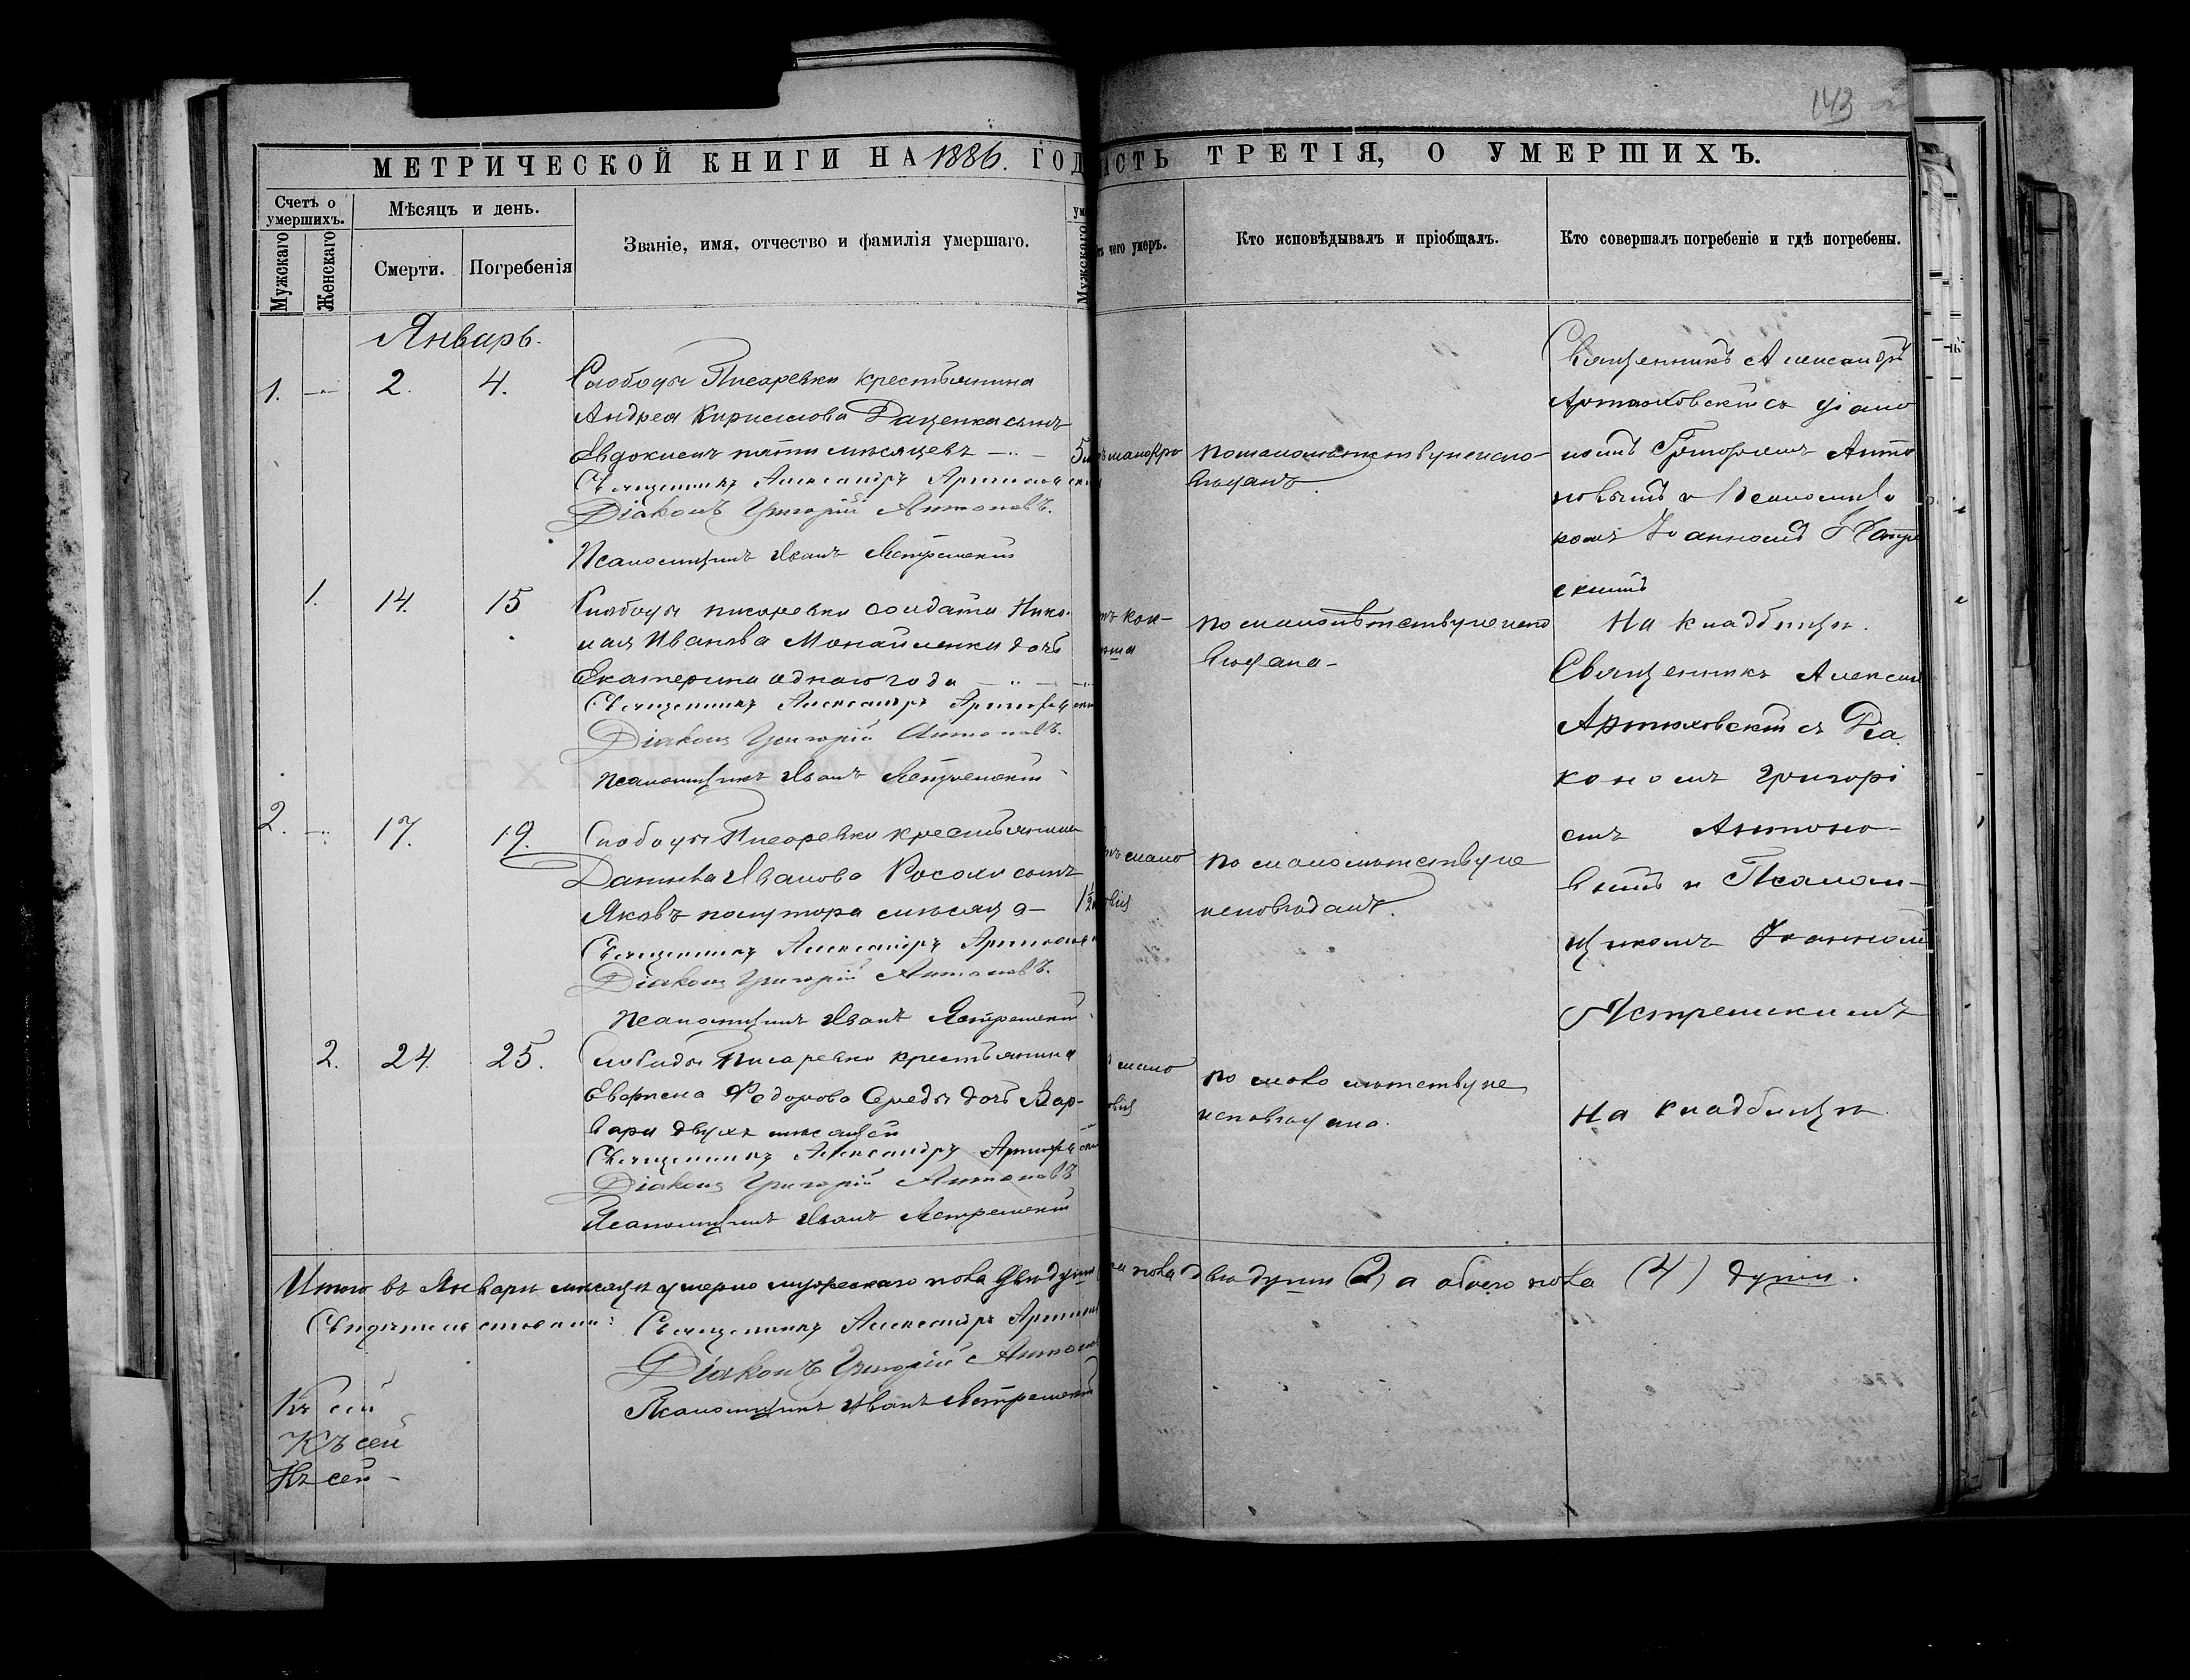 143
МЕТРИЧЕСКОЙ КНИГИ НА 1886. ГОД
СТЬ ТРЕТІЯ, О УМЕРШИХЪ.
Счетъ о умершихъ.
Мужскаго
Женскаго
Мѣсяцъ и день.
Смерти.
Погребенія
Званіе, имя, отчество и фамилія умершаго.
Мужскаго
чего умеръ.
Кто исповѣдывалъ и пріобщалъ.
Кто совершалъ погребеніе и гдѣ погребены.
Январь.
1. 2. 4.
Слободы Писаревки крестьянина
Андрея Кириллова Даценка сынъ
Евдокимъ пяти мѣсяцевъ
Священникъ Александръ
Діаконъ Григорій Антоновъ.
Псаломщикъ Иванъ Ястремскій
по малолѣтству не испо-
вѣданъ.
Священникъ Александръ
Артюховскій съ Діако
номъ Григоріемъ Анто
новымъ и Псаломщи
комъ Іоанномъ Ястре
скимъ
На кладбищѣ.
1. 14. 15
Слободы Писаревки солдата Нико-
лая Иванова Монайленки дочь
Екатерина одного года
Священникъ Александръ
Діаконъ Григорій Антоновъ.
Псаломщикъ Иванъ Ястремскій
по малолѣтству не испо
вѣдана-
Священникъ Алексан
Артюховскій съ Діа
кономъ Григорі
емъ Антоно-
вымъ и Псалом-
щикомъ Іоанномъ
Ястремскимъ
На кладбищѣ
2. 17. 19.
Слободы Писаревки крестьянина
Данила Иванова Росохи сынъ
Яковъ полутора мѣсяца
Священникъ Александръ
Діаконъ Григорій Антоновъ.
Псаломщикъ Иванъ Ястремскій
1½
по малолѣтству не
исповѣданъ.
2. 24. 25.
Слободы Писаревки крестьянина
Федорова дочь Вар-
вара двухъ мѣсяцей
Священникъ Александръ
Діаконъ Григорій Антоновъ
Псаломщикъ Иванъ Ястремскій
по малолѣтству не
исповѣдана.
Итого въ Январѣ мѣсяцѣ умерло мужескаго пола двѣ души
пола двѣ души (2) а обоего пола (4) души.
Свидѣтельствовали: Священникъ Александръ
Діаконъ Григорій
Псаломщикъ Иванъ Ястремскій
Къ сей
Къ сей
Къ сей-